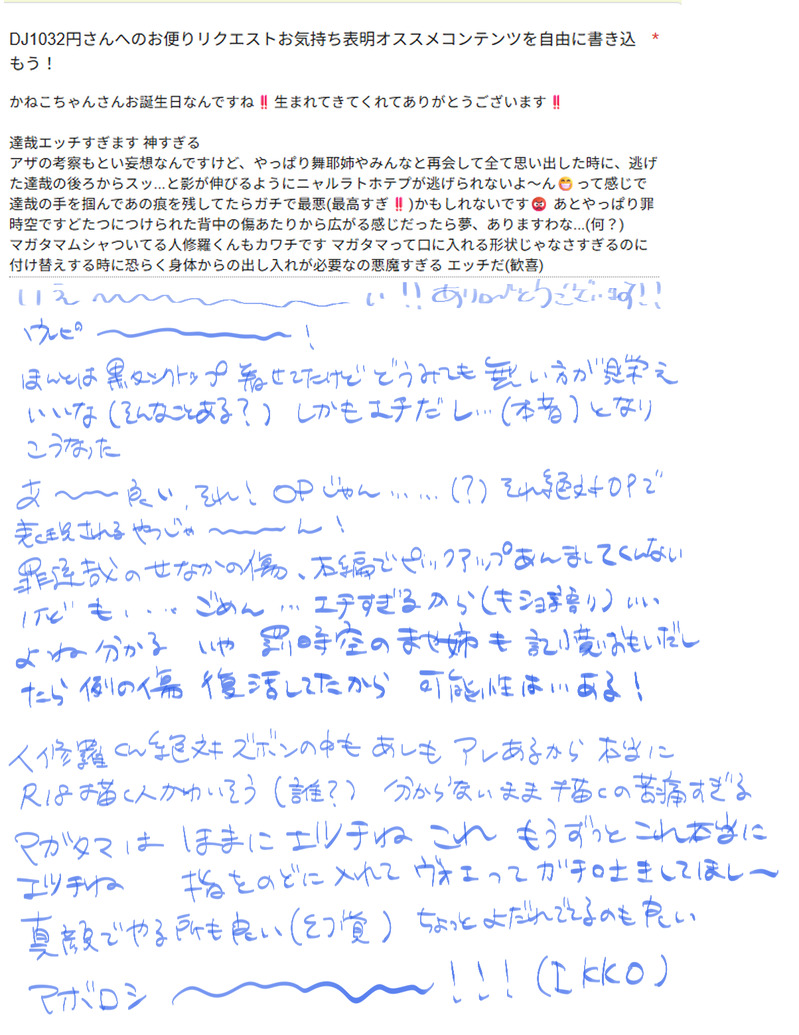 DJ1032円さんへのお便りリクエストお気持ち表明オススメコンテンツを自由に書き込 *
もう！
かねこちゃんさんお誕生日なんですね‼️生まれてきてくれてありがとうございます‼️
達哉エッチすぎます 神すぎる
アザの考察もとい妄想なんですけど、やっぱり舞耶姉やみんなと再会して全て思い出した時に、逃げ
た達哉の後ろからスッ...と影が伸びるようにニャルラトホテプが逃げられないよ〜ん😁って感じで
達哉の手を掴んであの痕を残してたらガチで最悪(最高すぎ‼️)かもしれないです😡 あとやっぱり罪
時空ですどたつにつけられた背中の傷あたりから広がる感じだったら夢、ありますわな...(何？)
マガタマムシャついてる人修羅くんもカワチです マガタマって口に入れる形状じゃなさすぎるのに
付け替えする時に恐らく身体からの出し入れが必要なの悪魔すぎる エッチだ(歓喜)
いえ〜〜〜〜い!!ありがとうございます!!
ウレピ〜〜〜!
ほんとは黒タンクトップ着せてたけどどうみても無い方が見栄え
いいな(そんなことある?) しかもエチだし…(本音)となり
こうなった
あ〜〜良い、それ! OPじゃん……(?) それ絶対OPで
表現されるやつじゃ〜〜ん!
罪達哉のせなかの傷、本編でピックアップあんましてくんない
けども... ごめん…エチすぎるから(キショ語り)いい
よね分かる いや 罰時空のまや姉も記憶おもいだし
たら例の傷 復活してたから 可能性はいある!
人修羅くん絶対ズボンの中も あしも アレあるから 本当に
R18描く人かわいそう(誰?) 分からないまま描くの苦痛すぎる
マガタマは ほまに エッチね これ もうずっと これ本当に
エッチね 指をのどに入れて ヴォエってガチ吐きしてほし〜
真顔でやる所も良い(幻覚) ちょっとよだれでてるのも良い
マボロシ〜〜〜!!!(IKKO)